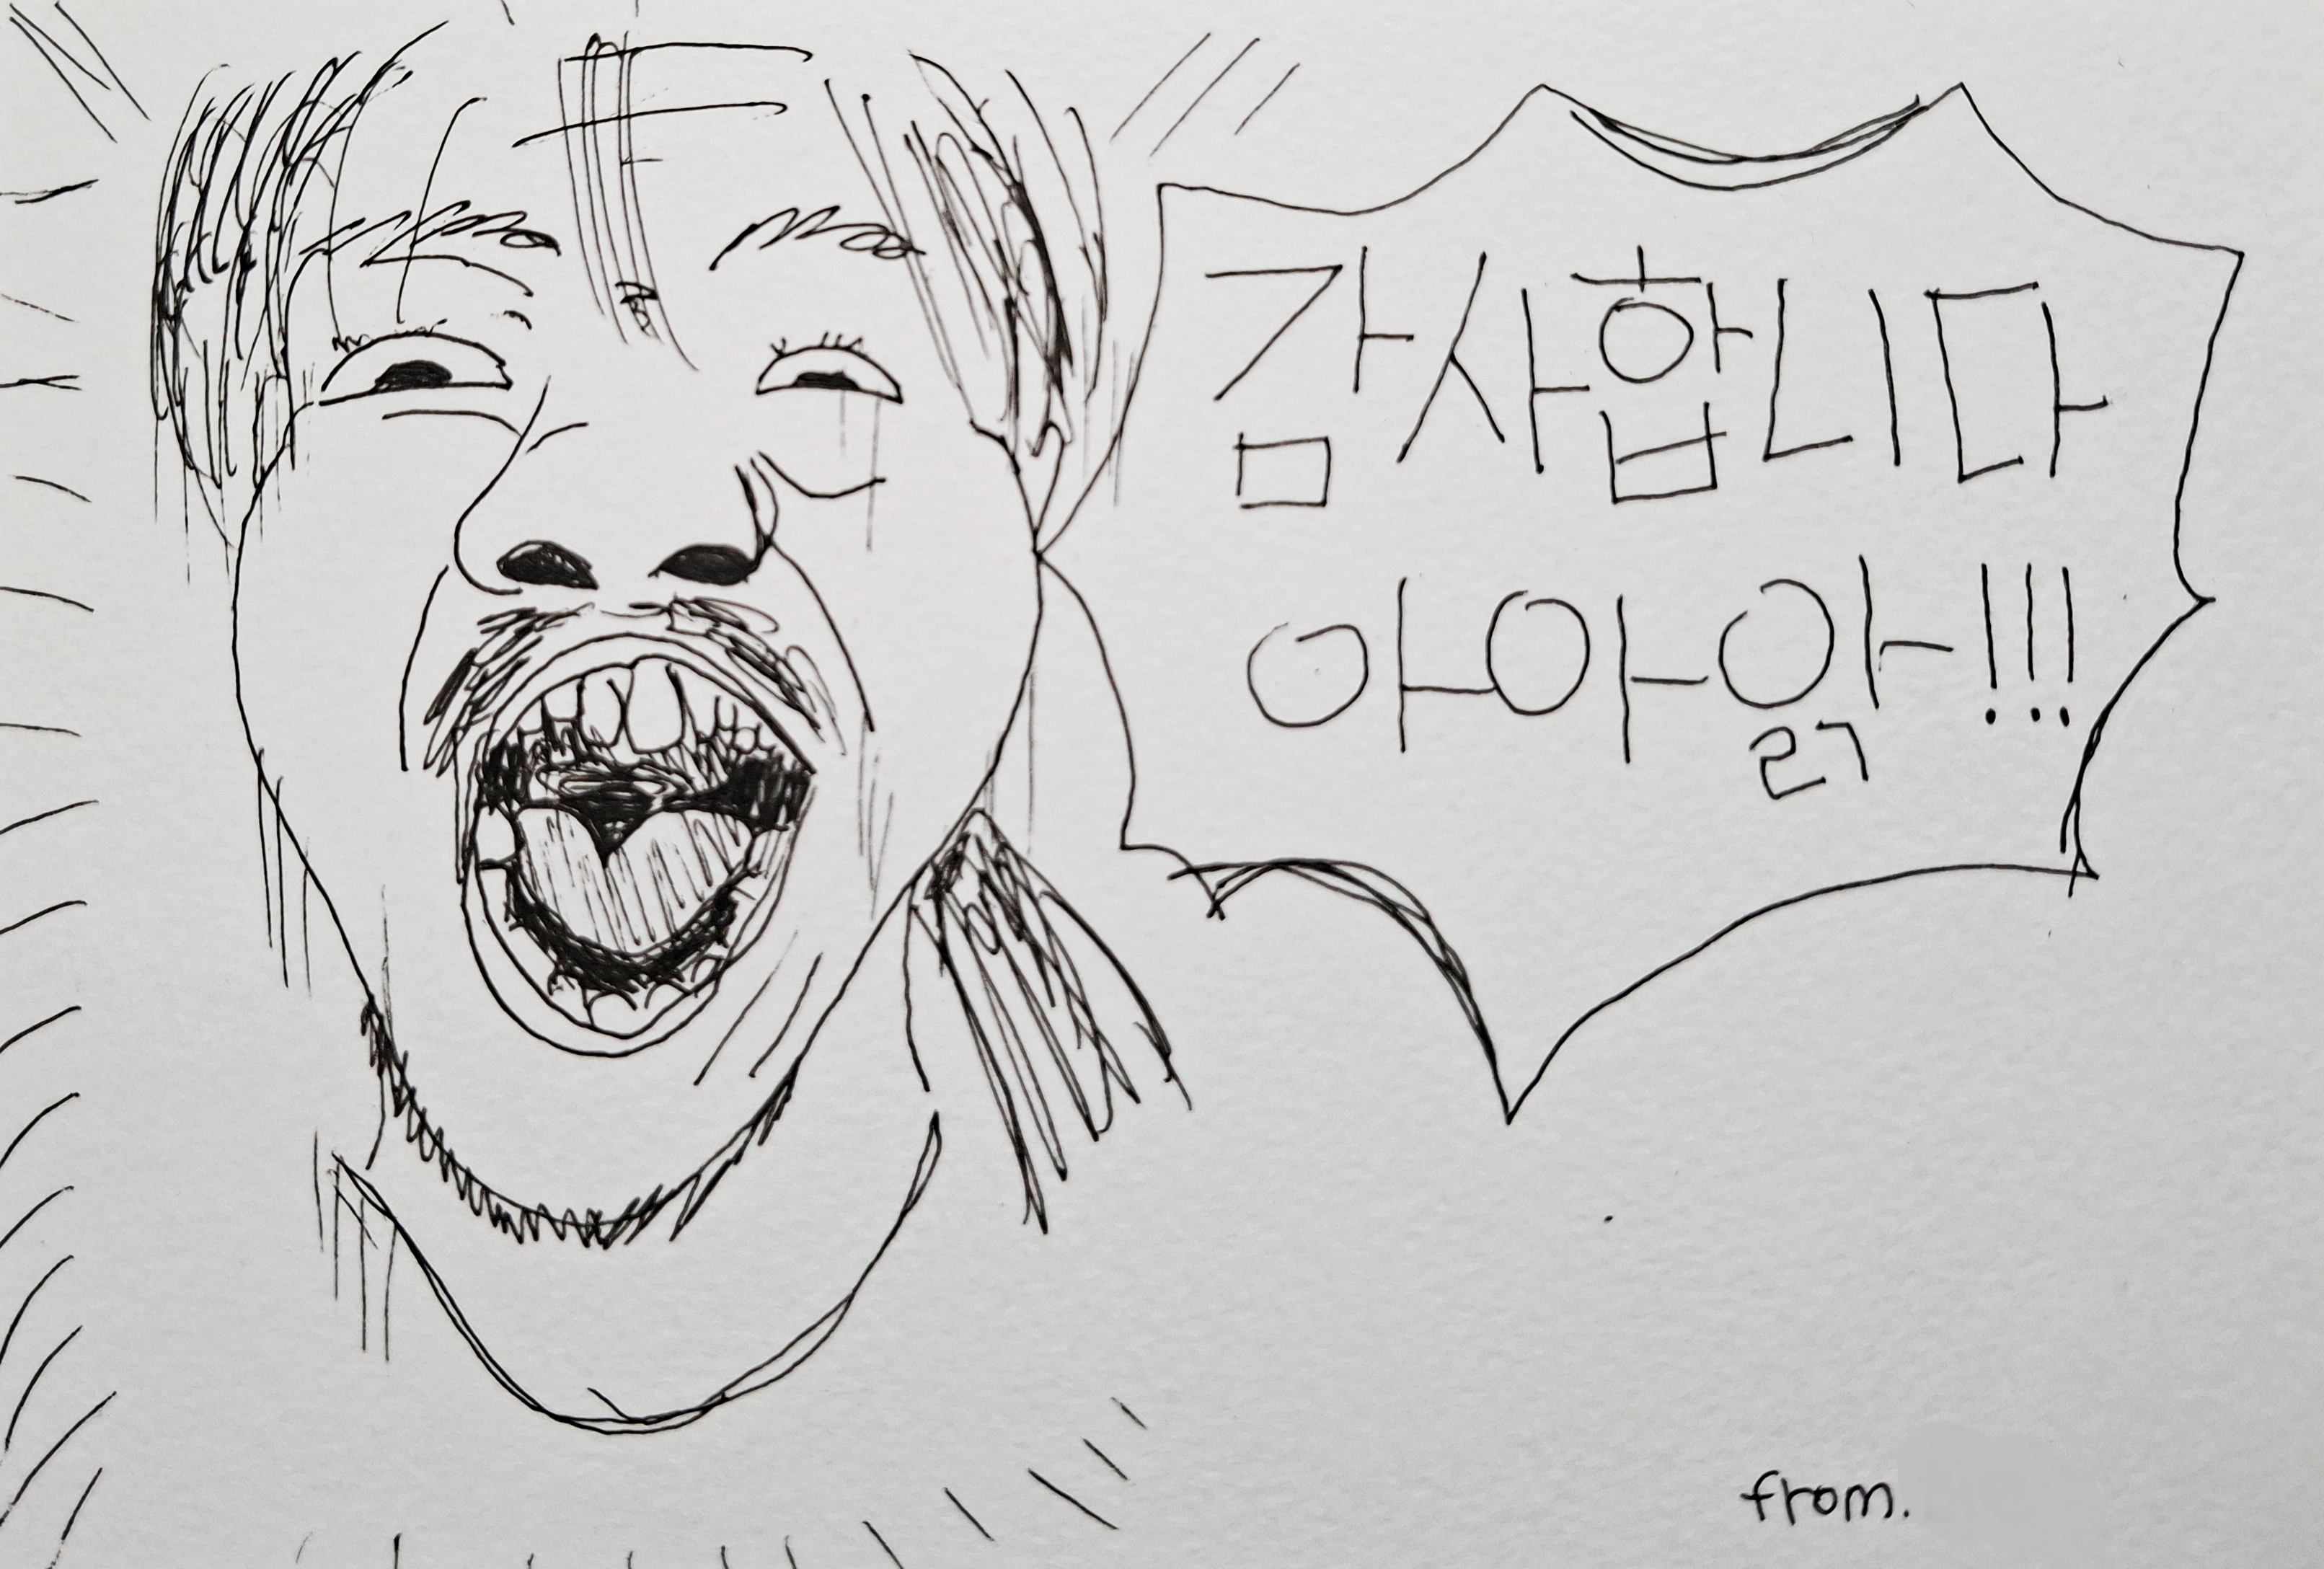 감사합니다
아아앍!!!
from.